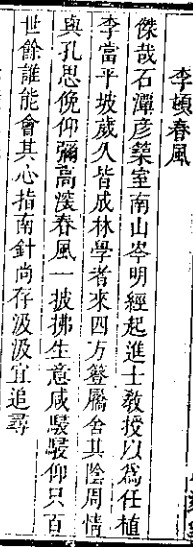 李頓春風
傑哉石潭彥築室南山岑明經起進士敎授以爲任植
李當平坡歲久皆成林學者來四方簦屩舍其陰周情
與孔思俛仰彌高深春風一披拂生意咸駸駸仰只百
世餘誰能會其心指南針尚存汲汲宜追尋